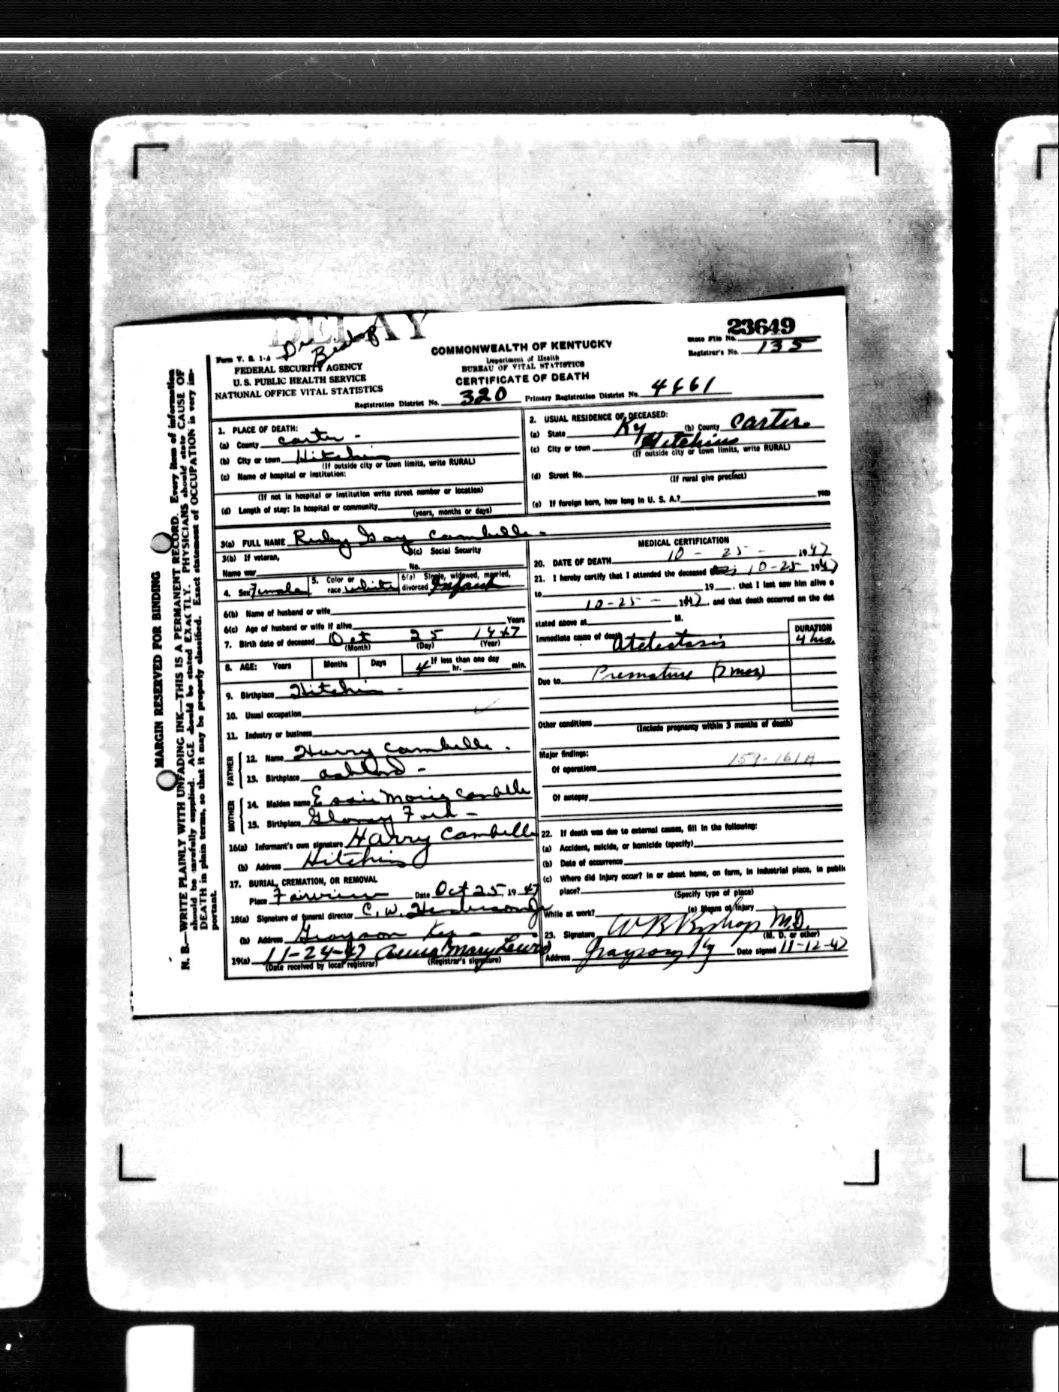 DELAY
Dr Bishop
23649
Form V. S. 1-A
COMMONWEALTH OF KENTUCKY
State File No.
FEDERAL SECURITY AGENCY
Department of Health
Registrar's No. 135
U. S. PUBLIC HEALTH SERVICE
BUREAU OF VITAL STATISTICS
NATIONAL OFFICE VITAL STATISTICS
CERTIFICATE OF DEATH
Registration District No. 320 Primary Registration District No. 4661
MARGIN RESERVED FOR BINDING
N. B.—WRITE PLAINLY WITH UNFADING INK—THIS IS A PERMANENT RECORD. Every item of information
should be carefully supplied. AGE should be stated EXACTLY. PHYSICIANS should state CAUSE OF
DEATH in plain terms, so that it may be properly classified. Exact statement of OCCUPATION is very im-
portant.
1. PLACE OF DEATH:
(a) County Carter
(b) City or town Hitchins
(If outside city or town limits, write RURAL)
(c) Name of hospital or institution:
(If not in hospital or institution write street number or location)
(d) Length of stay: In hospital or community
(years, months or days)
2. USUAL RESIDENCE OF DECEASED:
(a) State Ky (b) County Carter
(c) City or town Hitchins
(If outside city or town limits, write RURAL)
(d) Street No.
(If rural give precinct)
(e) If foreign born, how long in U. S. A.? years
3(a) FULL NAME Ruby Gay Cambelle
3(b) If veteran, 3(c) Social Security
Name war No.
4. Sex Female 5. Color or race White 6(a) Single, widowed, married, divorced Infant
6(b) Name of husband or wife
6(c) Age of husband or wife if alive Years
7. Birth date of deceased Oct 25 1947
(Month) (Day) (Year)
8. AGE: Years Months Days If less than one day
4 hr. min.
9. Birthplace Hitchins
10. Usual occupation
11. Industry or business
FATHER
12. Name Harry Cambelle
13. Birthplace Ashland
MOTHER
14. Maiden name Essie Marie Cambelle
15. Birthplace
16(a) Informant's own signature Harry Cambelle
(b) Address Hitchins
17. BURIAL, CREMATION, OR REMOVAL
Place Fairview Date Oct 25 1947
18(a) Signature of funeral director C. W. Henderson Jr
(b) Address Grayson Ky
19(a) 11-24-47 Mary Lewis
(Date received by local registrar) (Registrar's signature)
MEDICAL CERTIFICATION
20. DATE OF DEATH 10 - 25 - 1947
21. I hereby certify that I attended the deceased 10-25 1947
to 19 , that I last saw him alive o
10-25- 1947, and that death occurred on the dat
stated above at M.
Immediate cause of death Atelectasis
DURATION
4 hrs.
Due to Premature (7 mos)
Other conditions
(Include pregnancy within 3 months of death)
Major findings:
159-161A
Of operations
Of autopsy
22. If death was due to external causes, fill in the following:
(a) Accident, suicide, or homicide (specify)
(b) Date of occurrence
(c) Where did injury occur? In or about home, on farm, in industrial place, in publi
place?
(Specify type of place)
While at work? (e) Means of injury
23. Signature W B Bishop M.D.
(M. D. or other)
Address Grayson Ky Date signed 11-12-47